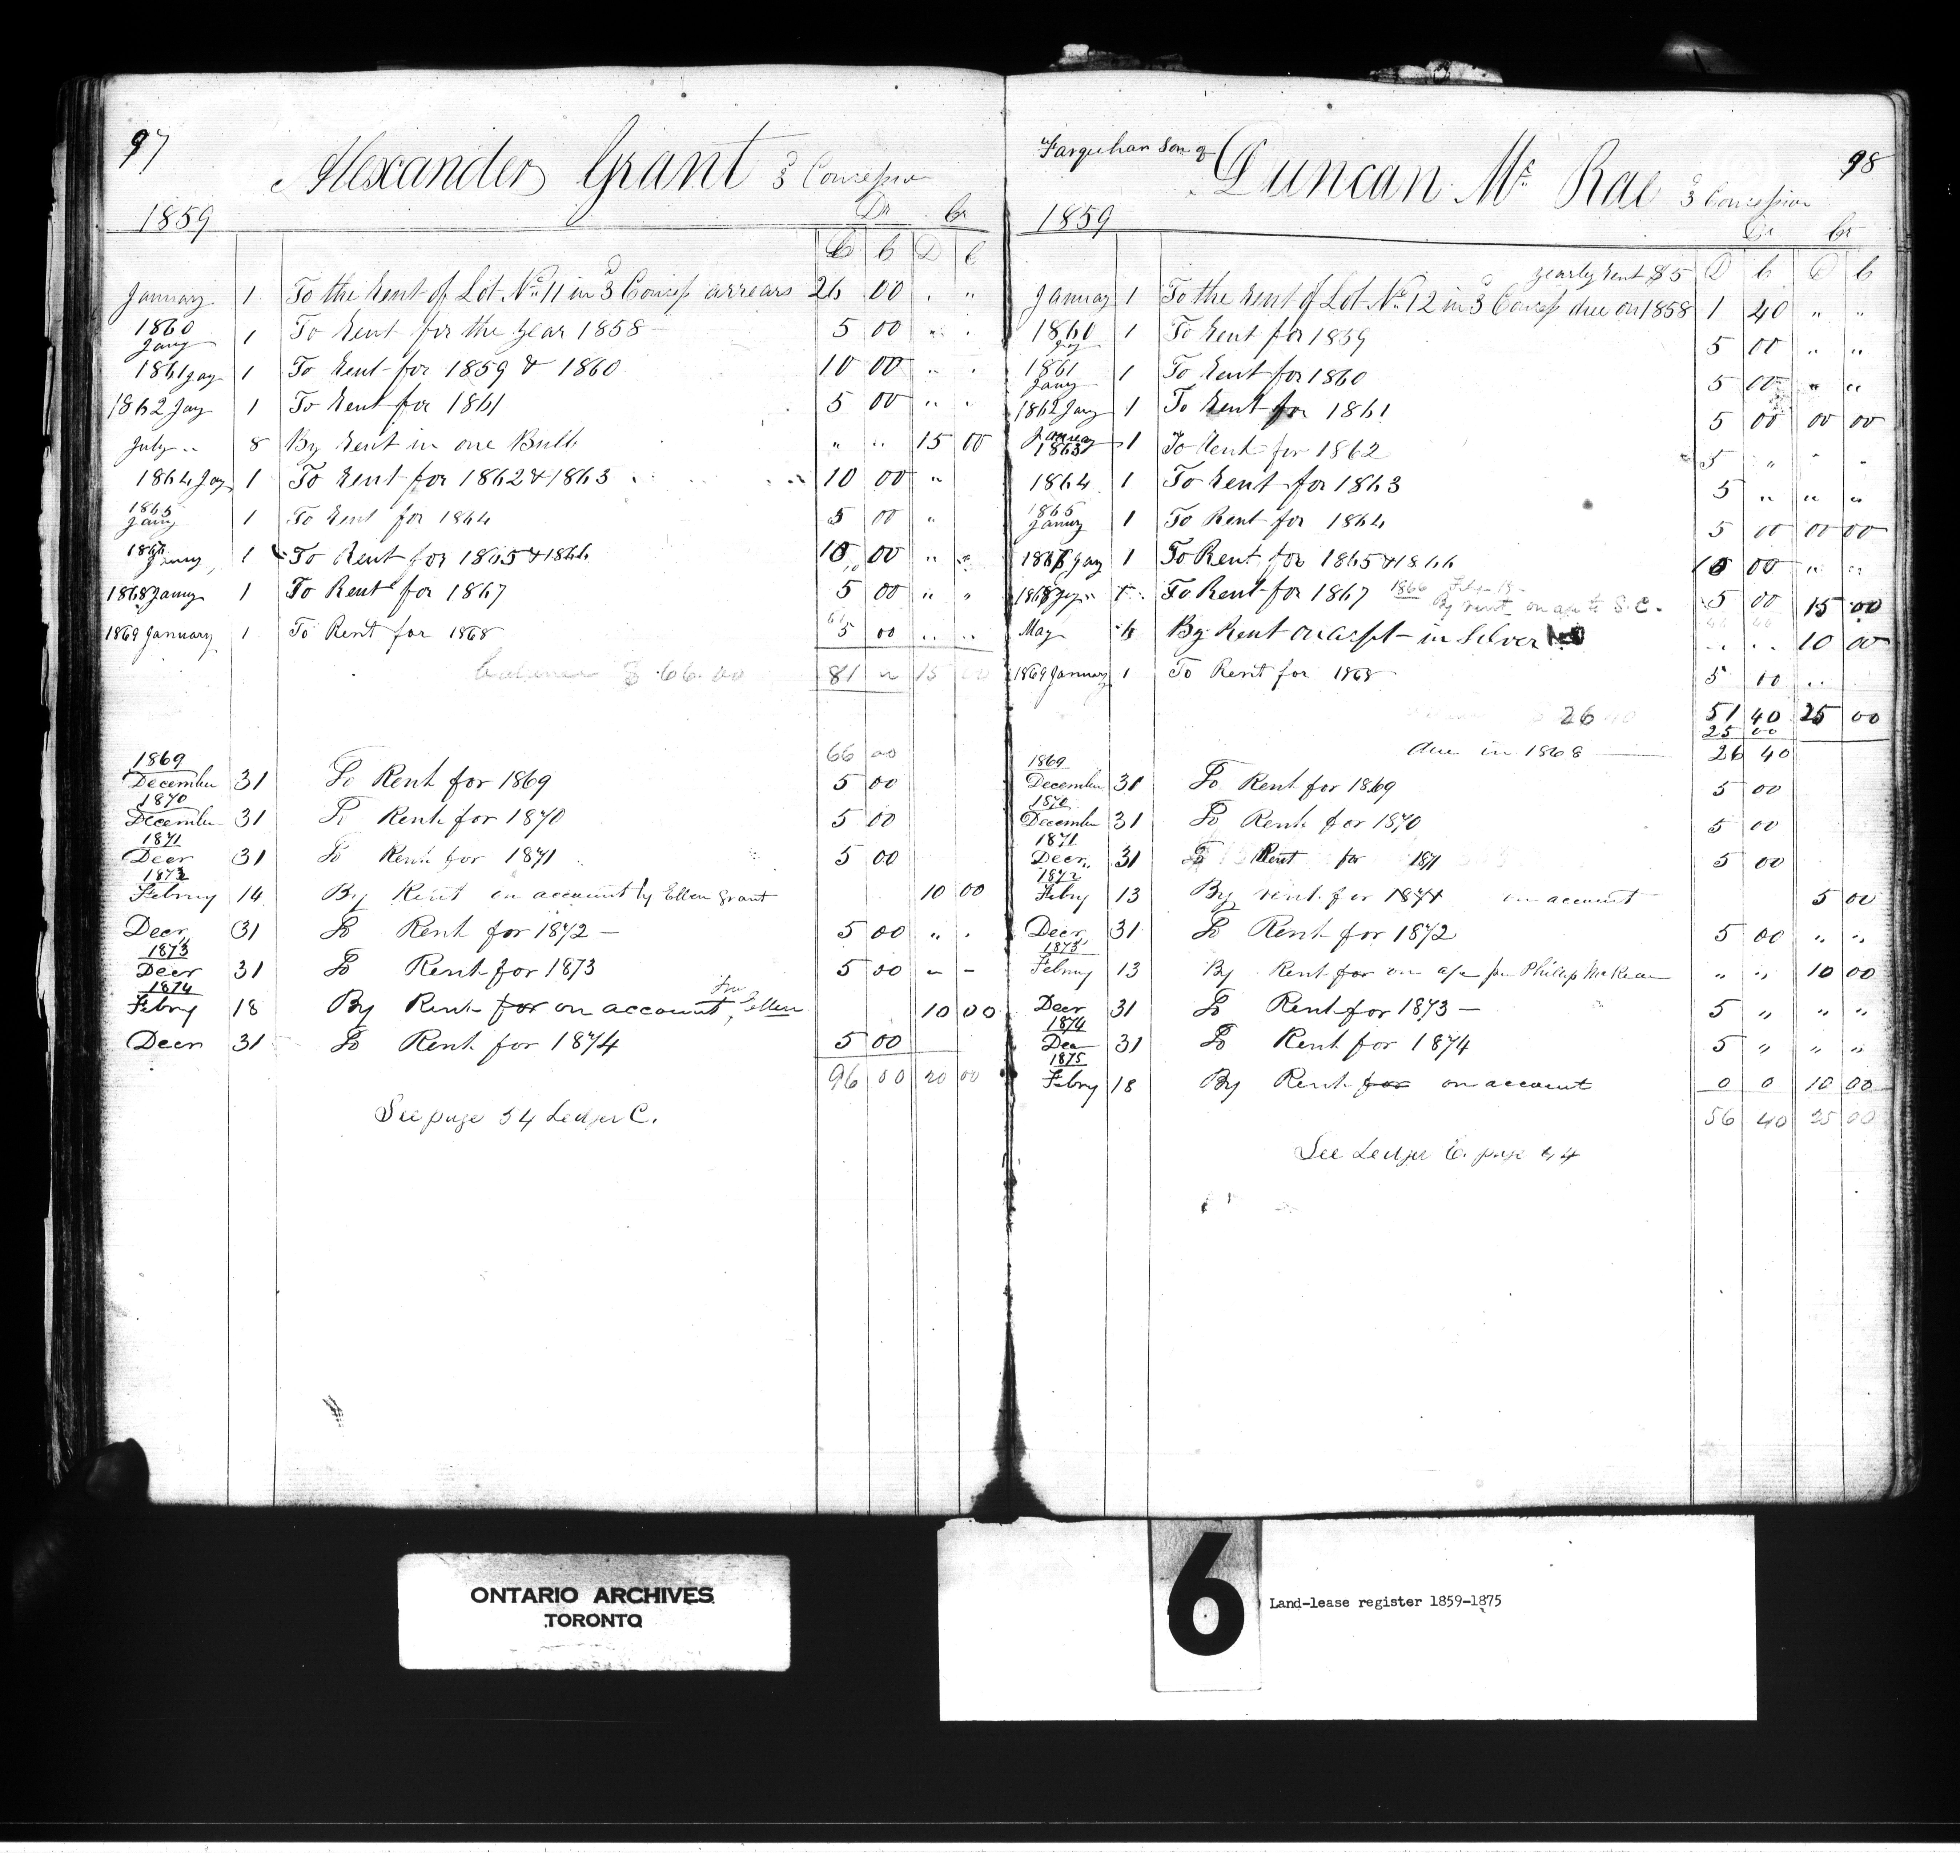 97
Alexander Grant 3d Concession
1859 Dr Cr
D C D C
January 1 To the Rent of Lot No 11 in 3d Concess arrears 26 00 . "
1860 Jany 1 To Rent for the year 1858 — 5 00 " .
1861 Jay 1 To Rent for 1859 & 1860 10 00 " .
1862 Jay 1 To Rent for 1861 5 00 " .
July " 8 By Rent in one Bill " " 15 00
1864 Jay 1 To Rent for 1862 & 1863 10 00 "
1865 Jany 1 To Rent for 1864 5 00 "
Jany 1 To Rent for 1865 & 1866 10 00 " "
1868 Jany 1 To Rent for 1867 5 00 " "
1869 January 1 To Rent for 1868 5 00 " "
balance $ 66.00 81 " 15 00
66 00
1869
December 31 To Rent for 1869 5 00
1870
December 31 To Rent for 1870 5 00
1871
Decr 31 To Rent for 1871 5 00
1872
Febry 14 By Rent on account by Ellen Grant 10 00
Decr 31 To Rent for 1872 — 5 00 " .
1873
Decr 31 To Rent for 1873 5 00 — —
1874
Febry 18 By Rent for on account, Ellen 10 00
Decr 31 To Rent for 1874 5 00
96 00 20 00
See page 54 Ledger C.
98
Farquhar Son of Duncan Mc Rae 3d Concession
1859 Dr Cr
yearly Rent $5 D C D C
January 1 To the Rent of Lot No 12 in 3d Concess due on 1858 1 40 " "
1860 Jay 1 To Rent for 1859 5 00 " "
1861 Jany 1 To Rent for 1860 5 00 " "
1862 Jany 1 To Rent for 1861 5 00 00 00
January 1863 1 To Rent for 1862 5 " " "
1864 1 To Rent for 1863 5 " " "
1865 Janry 1 To Rent for 1864 5 00 00 00
1867 Jay 1 To Rent for 1865 & 1866 10 00 " "
1866
1868 Jay 1 To Rent for 1867 By rent on a/c to S.C. 5 00 15 00
May 4 By Rent on acspt in Silver " " 10 00
1869 January 1 To Rent for 1868 5 00 "
26 40 51 40 25 00
25 00
due in 1868 26 40
1869
December 31 To Rent for 1869 5 00
1870
December 31 To Rent for 1870 5 00
1871
Decr 31 To Rent for 1871 5 00
1872
Febry 13 By rent for 1871 on account 5 00
Decr 31 To Rent for 1872 5 00 " "
1873
Febry 13 By Rent for on a/c per Philip McRae " " 10 00
Decr 31 To Rent for 1873 — 5 " " "
1874
Dec 31 To Rent for 1874 5 " " "
1875
Febry 18 By Rent for on account 0 0 10 00
56 40 25 00
See Ledger C. page 54
ONTARIO ARCHIVES
TORONTO
6
Land-lease register 1859-1875